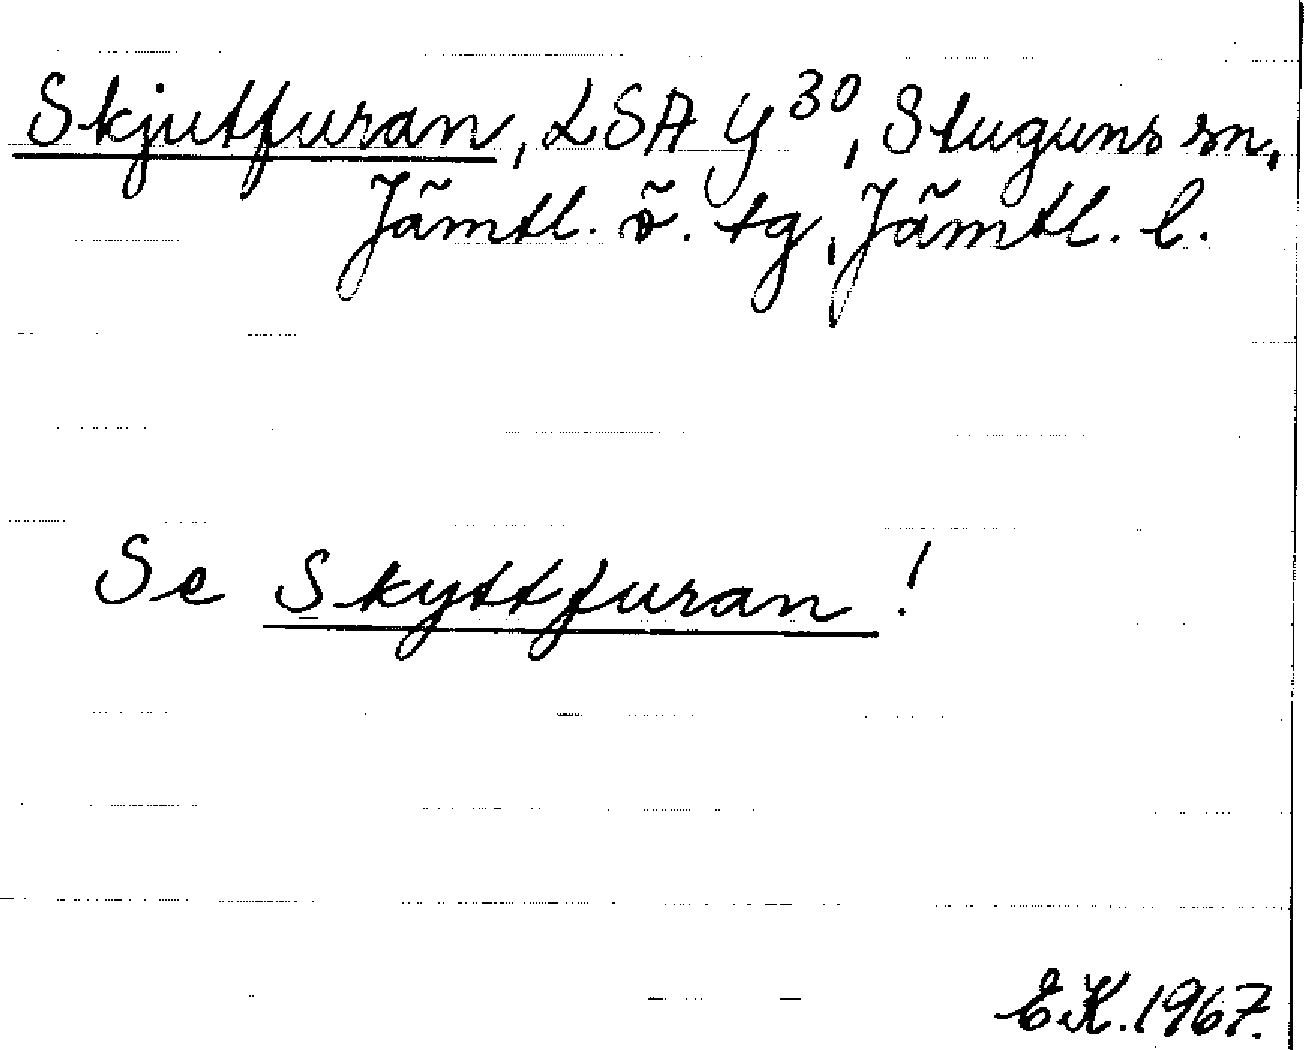 Skjutfuran, LSA Y30, Stuguns sn,
Jämtl. ö. tg, Jämtl. l.
Se Skyttfuran!
E.K. 1967.